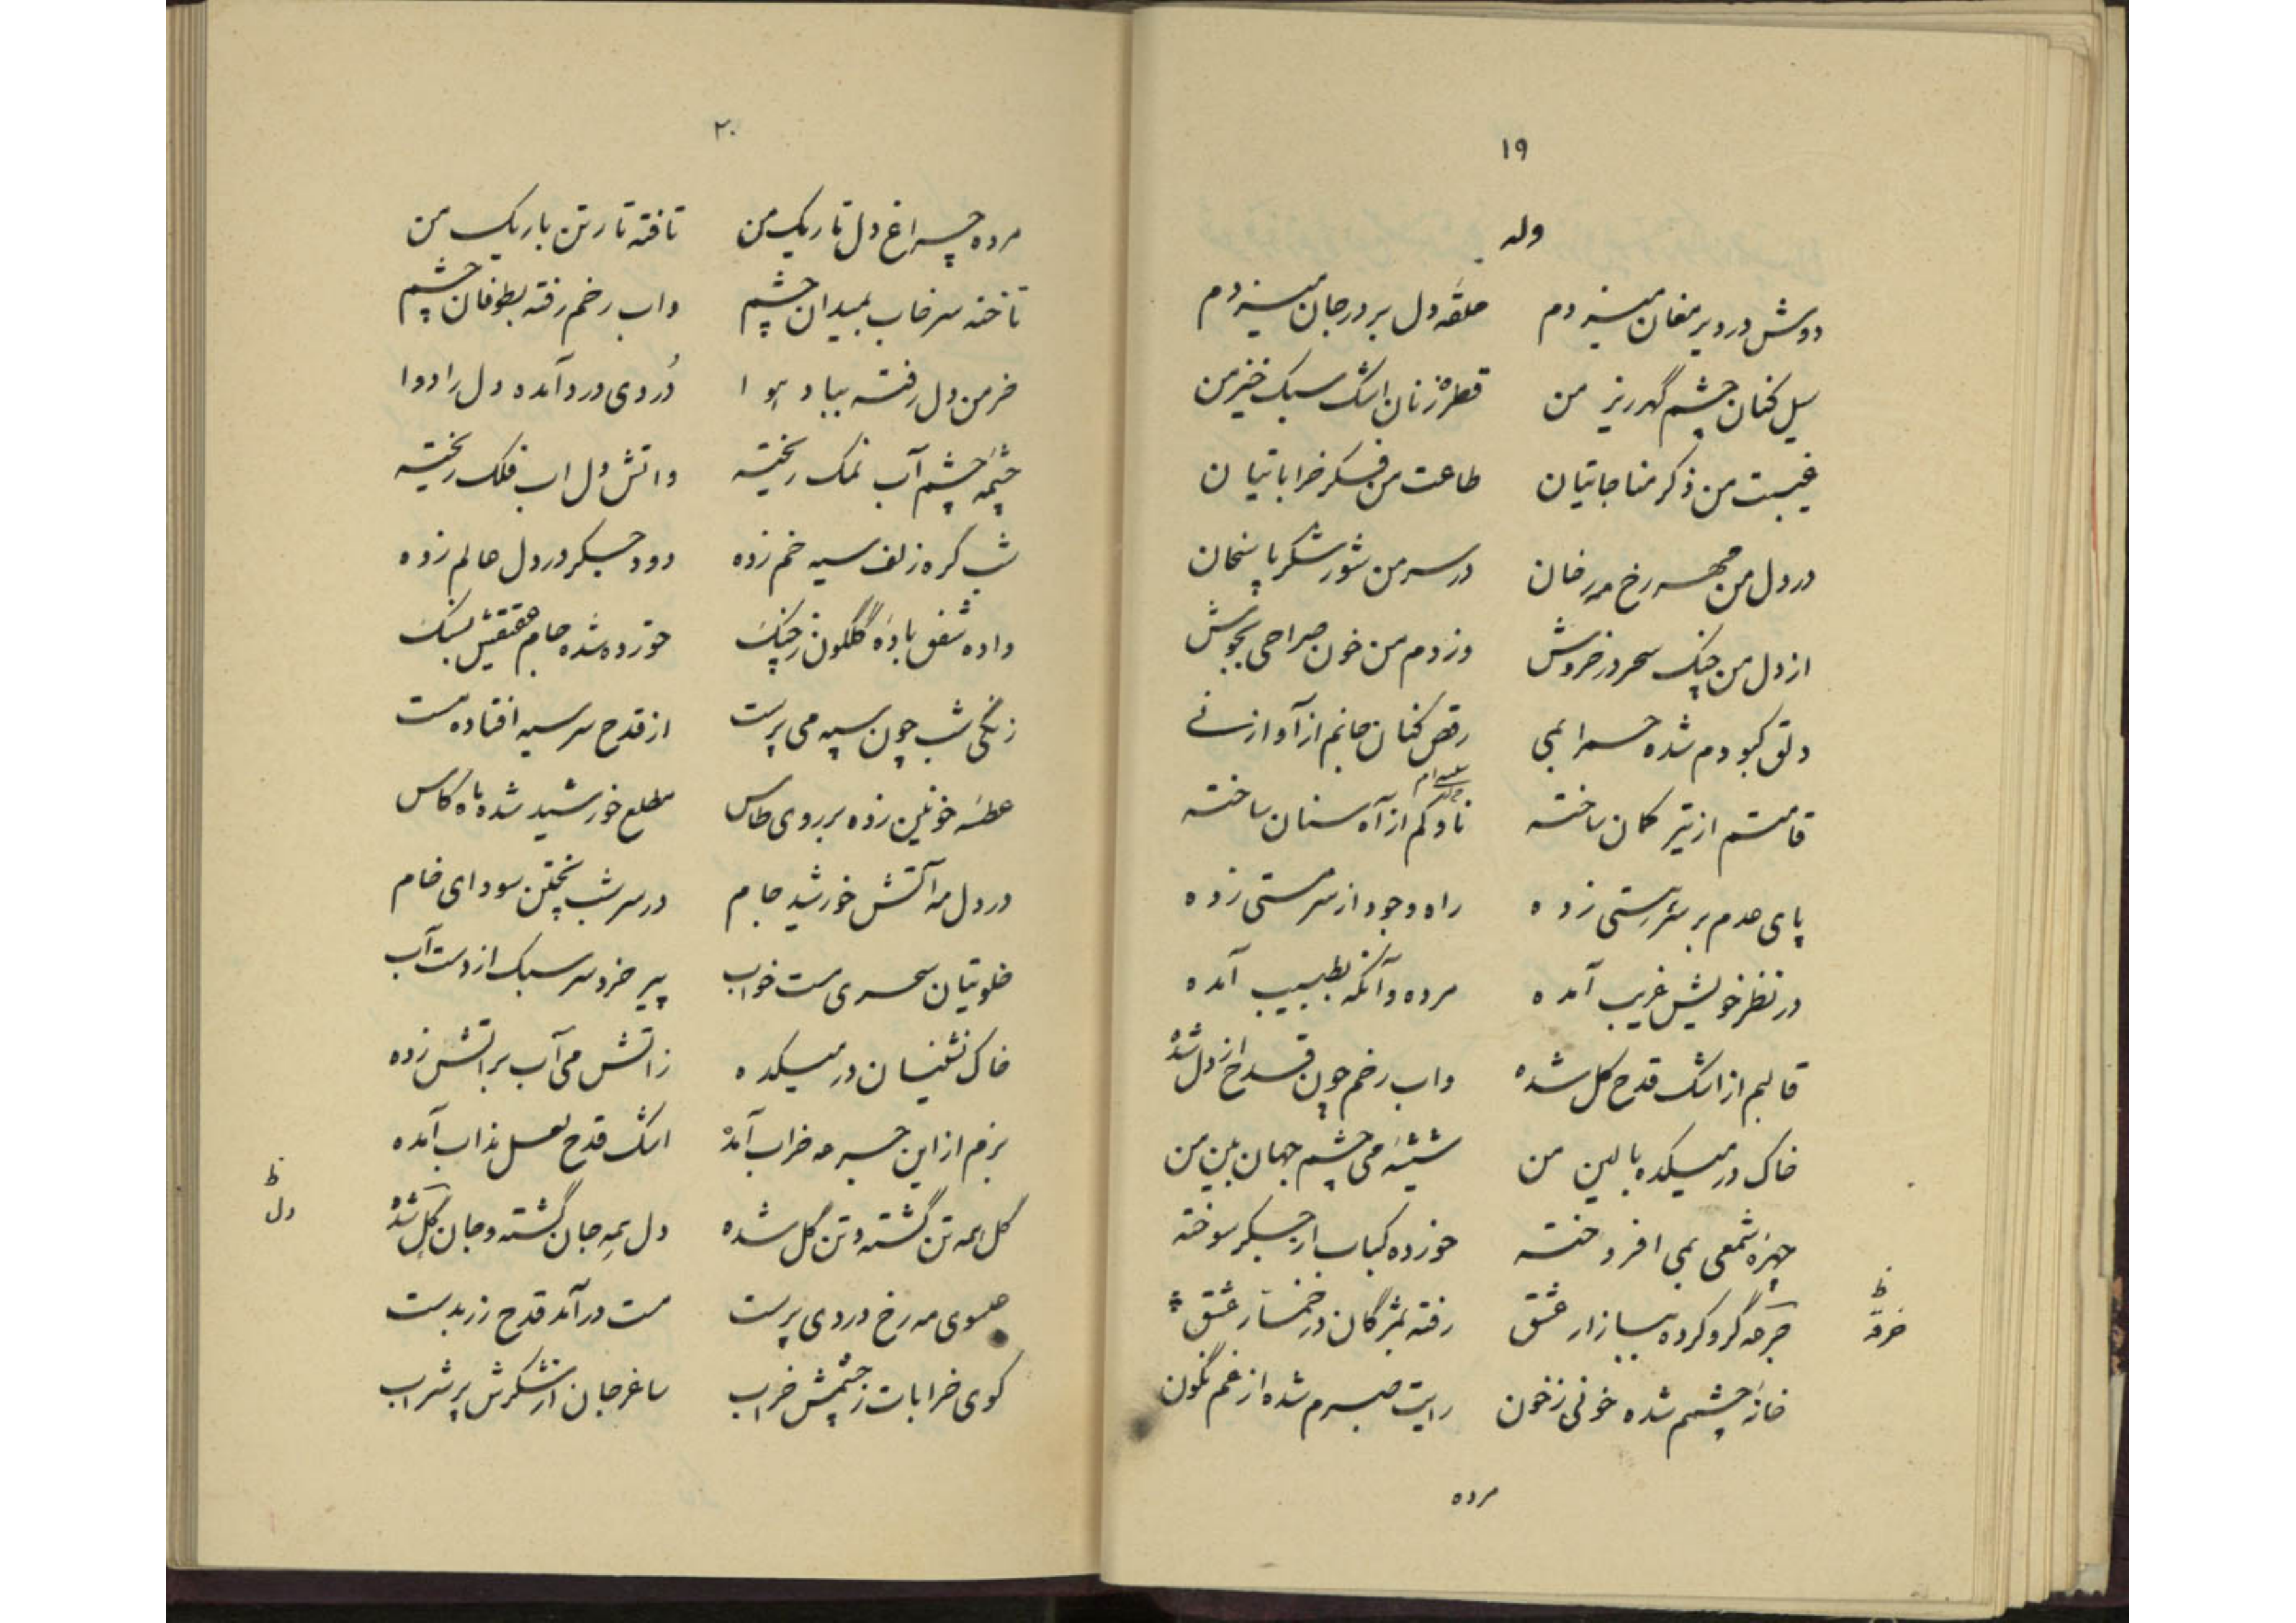 ١٩
وله
دوش در دیر مغان میزدم حلقه دل بر در جان میزدم
سیل کنان چشم گهرریز من قطره‌زنان اشک سبک خیز من
غیبت من ذکر مناجاتیان طاعت من فکر خراباتیان
در دل من مهر رخ مهرخان در سر من شور شکر پاسخان
از دل من چنگ سحر در خروش وز دم من خون صراحی بجوش
دلق کبودم شده حمرا بمی رقص کنان جانم از آواز نی
قامتم از تیر کمان ساخته ناوکم از آه سنان ساخته
پای عدم بر سر هستی زده راه وجود از سر مستی زده
در نظر خویش غریب آمده مرده و آنگه بطبیب آمده
قالبم از اشک قدح گل شده واب رخم چون قدح از دل شده
خاک در میکده بالین من شیشهٔ می چشم جهان بین من
چهرهٔ شمعی بمی افروخته خورده کباب از جگر سوخته
جرعه گرو کرده ببازار عشق رفته بمژگان در خمار عشق
ظ
خرقه
خانهٔ چشمم شده خونی ز خون رایت صبرم شده از غم نگون
مرده
٢٠
مرده چراغ دل تاریک من تافته تار تن باریک من
تاخته سرخاب بمیدان چشم واب رخم رفته بطوفان چشم
خرمن دل رفته بباد هوا دُردی درد آمده دل را دوا
چشمهٔ چشم آب نمک ریخته واتش دل اب فلک ریخته
شب گره زلف سیه خم زده دود جگر در دل عالم زده
داده شفق بادهٔ گلگون ز چنگ خورده شده جام عقیقش بسنگ
زنگی شب چون سیه می پرست از قدح سر سیه افتاده مست
عطسهٔ خونین زده بر روی طاس مطلع خورشید شده ماه کاس
در دل مه آتش خورشید جام در سر شب پختن سودای خام
خلوتیان سحری مست خواب پیر خرد سر سبک از دست آب
خاک نشینان در میکده زاتش می آب بر اتش زده
بزم از این جرعه خراب آمده اشک قدح لعل مذاب آمده
گل همه تن گشته و تن گل شده دل همه جان گشته و جان گل شده
ظ
دل
هموی مه رخ دردی پرست مست در آمد قدح زر بدست
کوی خرابات ز چشمش خراب ساغر جان از شکرش پر شراب